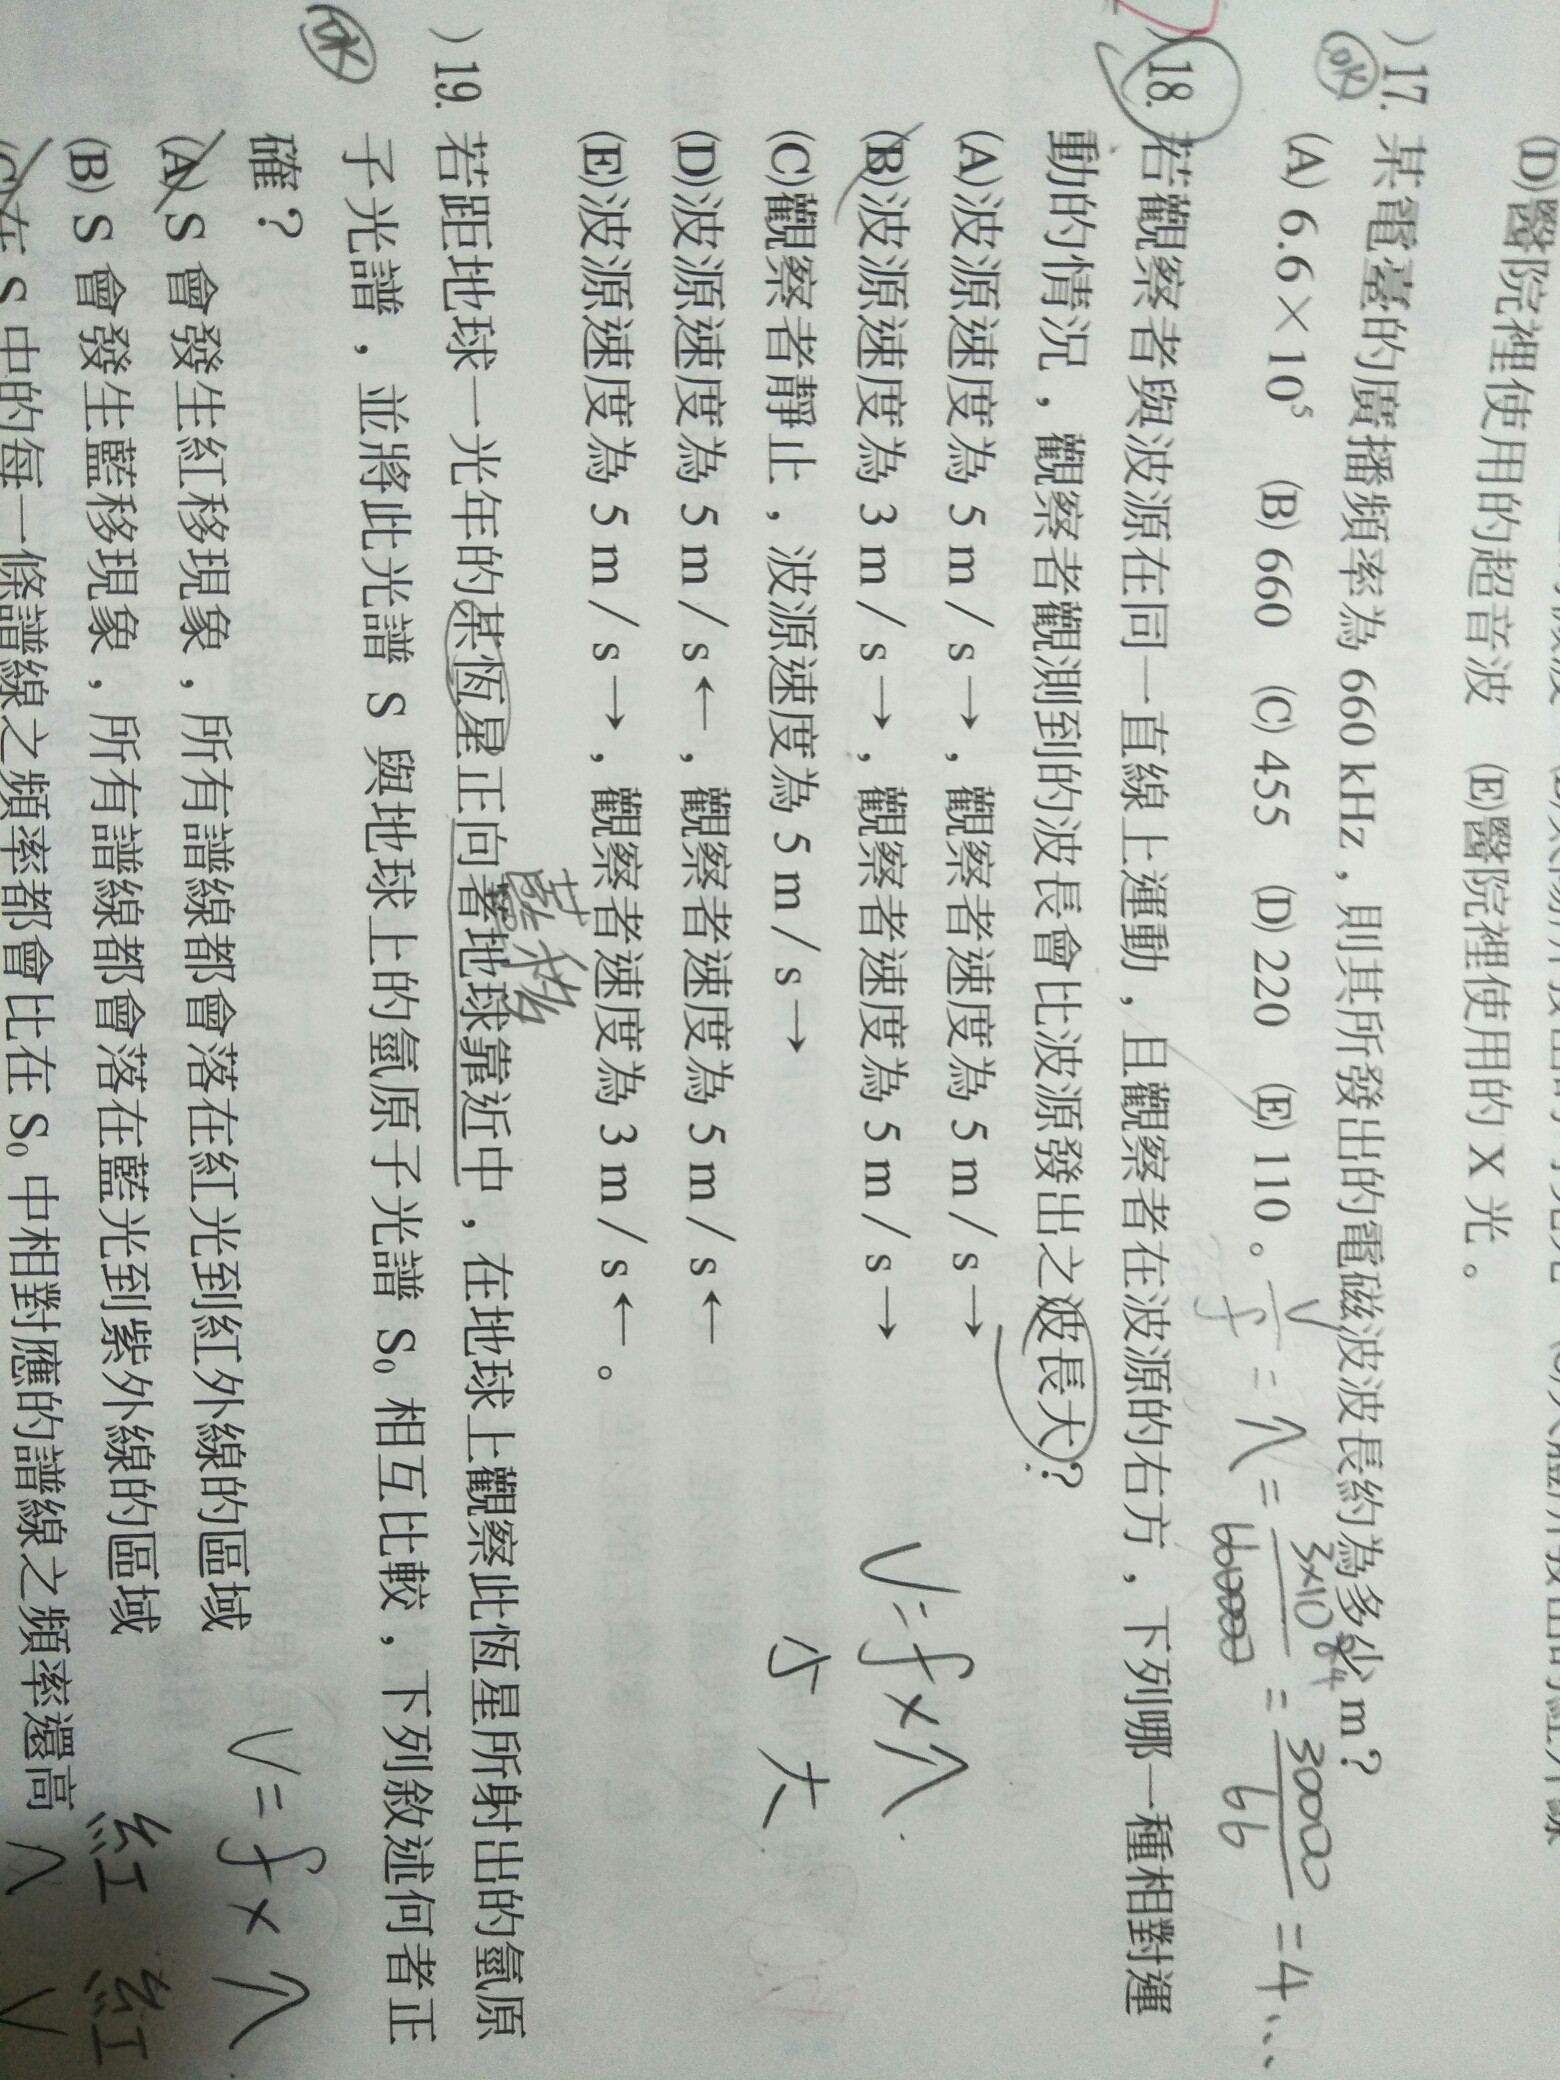 (D)醫院裡使用的超音波　(E)醫院裡使用的 X 光。
)17. 某電臺的廣播頻率為 660 kHz，則其所發出的電磁波波長約為多少 m？
OK
(A) 6.6×10⁵　(B) 660　(C) 455　(D) 220　(E) 110。
V/f = λ = 3×10⁸ = 30000/66 = 4...
)18. 若觀察者與波源在同一直線上運動，且觀察者在波源的右方，下列哪一種相對運
動的情況，觀察者觀測到的波長會比波源發出之波長大？
(A)波源速度為 5 m / s→，觀察者速度為 5 m / s→
(B)波源速度為 3 m / s→，觀察者速度為 5 m / s→
V=f×λ
(C)觀察者靜止，波源速度為 5 m / s→
小 大
(D)波源速度為 5 m / s←，觀察者速度為 5 m / s←
(E)波源速度為 5 m / s→，觀察者速度為 3 m / s←。
藍移
)19. 若距地球一光年的某恆星正向著地球靠近中，在地球上觀察此恆星所射出的氫原
OK
子光譜，並將此光譜 S 與地球上的氫原子光譜 S₀ 相互比較，下列敘述何者正
確？
V=f×λ
(A) S 會發生紅移現象，所有譜線都會落在紅光到紅外線的區域
(B) S 會發生藍移現象，所有譜線都會落在藍光到紫外線的區域
紅 紅
(C)在 S 中的每一條譜線之頻率都會比在 S₀ 中相對應的譜線之頻率還高